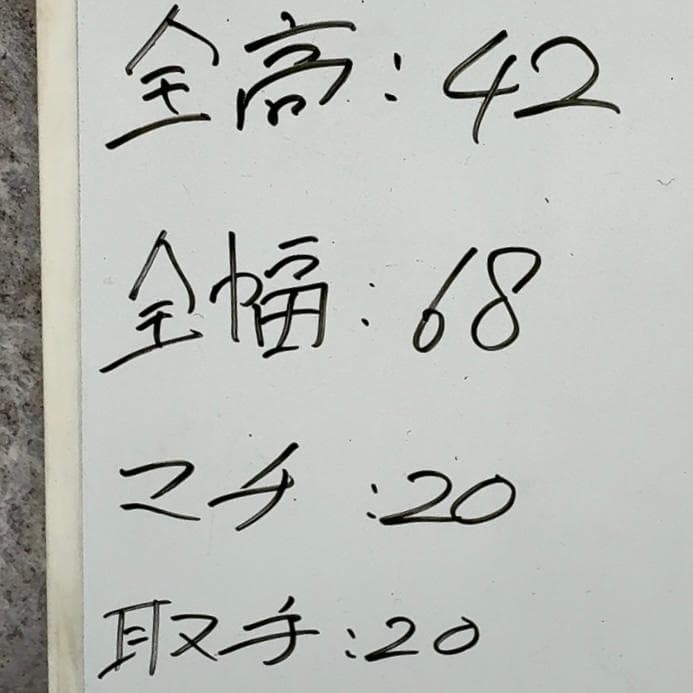 全高:42
全幅:68
マチ:20
取手:20